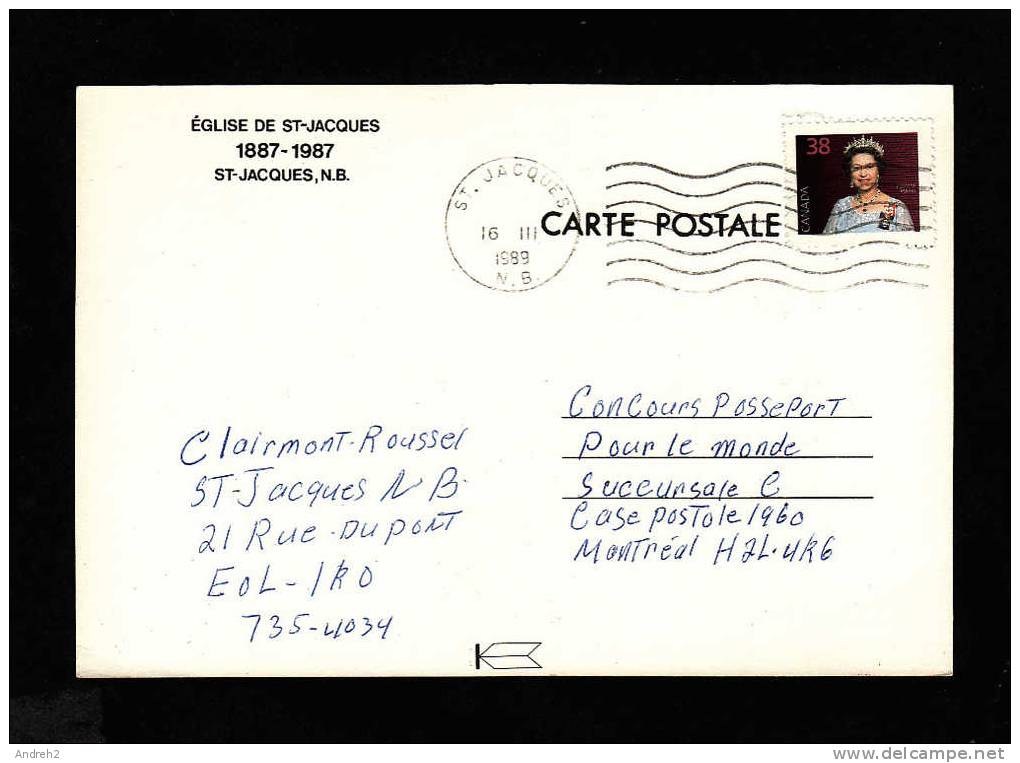 ÉGLISE DE ST-JACQUES
1887-1987
ST-JACQUES, N.B.
ST. JACQUES
16 III
1989
N.B.
CARTE POSTALE
38
CANADA
Clairmont-Roussel
ST-Jacques N B.
21 Rue-DU PONT
EOL-1R0
735-4034
Concours PassePorT
Pour le monde
Succursale C
Case postale 1960
Montréal H2L-4K6
Andreh2
delcampe.net